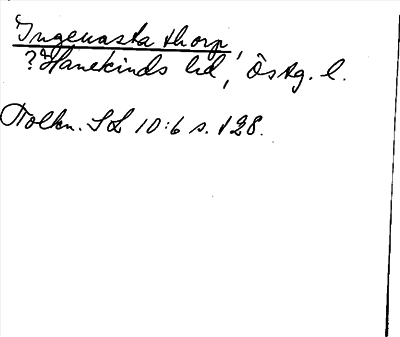 Ingeuasta thorp,
?Hanekinds hd, Östg. l.
Tolkn. SL 10:6 s. 128.